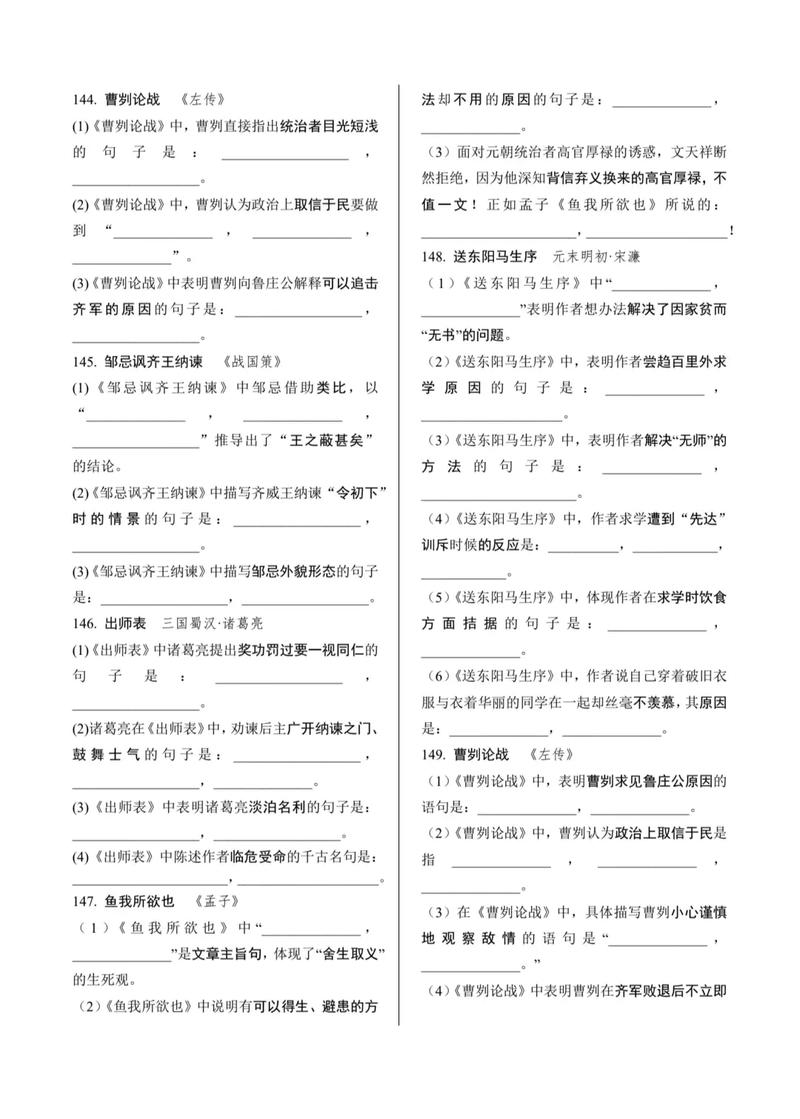 144. 曹刿论战 《左传》
(1)《曹刿论战》中，曹刿直接指出统治者目光短浅
的句子是：__________________，
__________________。
(2)《曹刿论战》中，曹刿认为政治上取信于民要做
到“______________，______________，
______________”。
(3)《曹刿论战》中表明曹刿向鲁庄公解释可以追击
齐军的原因的句子是：__________________，
__________________。
145. 邹忌讽齐王纳谏 《战国策》
(1)《邹忌讽齐王纳谏》中邹忌借助类比，以
“______________，______________，
__________________”推导出了“王之蔽甚矣”
的结论。
(2)《邹忌讽齐王纳谏》中描写齐威王纳谏“令初下”
时的情景的句子是：__________________，
__________________。
(3)《邹忌讽齐王纳谏》中描写邹忌外貌形态的句子
是：__________________，__________________。
146. 出师表 三国蜀汉·诸葛亮
(1)《出师表》中诸葛亮提出奖功罚过要一视同仁的
句子是：__________________，
__________________。
(2)诸葛亮在《出师表》中，劝谏后主广开纳谏之门、
鼓舞士气的句子是：__________________，
__________________，______________。
(3)《出师表》中表明诸葛亮淡泊名利的句子是：
__________________，__________________。
(4)《出师表》中陈述作者临危受命的千古名句是：
______________________，____________________。
147. 鱼我所欲也 《孟子》
（1）《鱼我所欲也》中“______________，
______________”是文章主旨句，体现了“舍生取义”
的生死观。
（2）《鱼我所欲也》中说明有可以得生、避患的方
法却不用的原因的句子是：______________，
______________。
（3）面对元朝统治者高官厚禄的诱惑，文天祥断
然拒绝，因为他深知背信弃义换来的高官厚禄，不
值一文！正如孟子《鱼我所欲也》所说的：
______________________，____________________！
148. 送东阳马生序 元末明初·宋濂
（1）《送东阳马生序》中“______________，
______________”表明作者想办法解决了因家贫而
“无书”的问题。
（2）《送东阳马生序》中，表明作者尝趋百里外求
学原因的句子是：______________，
____________________。
（3）《送东阳马生序》中，表明作者解决“无师”的
方法的句子是：______________，
______________________。
（4）《送东阳马生序》中，作者求学遭到“先达”
训斥时候的反应是：__________，____________，
____________。
（5）《送东阳马生序》中，体现作者在求学时饮食
方面拮据的句子是：______________，
______________。
（6）《送东阳马生序》中，作者说自己穿着破旧衣
服与衣着华丽的同学在一起却丝毫不羡慕，其原因
是：______________，______________。
149. 曹刿论战 《左传》
（1）《曹刿论战》中，表明曹刿求见鲁庄公原因的
语句是：______________，______________。
（2）《曹刿论战》中，曹刿认为政治上取信于民是
指______________，______________，
______________。
（3）在《曹刿论战》中，具体描写曹刿小心谨慎
地观察敌情的语句是“______________，
______________。”
（4）《曹刿论战》中表明曹刿在齐军败退后不立即